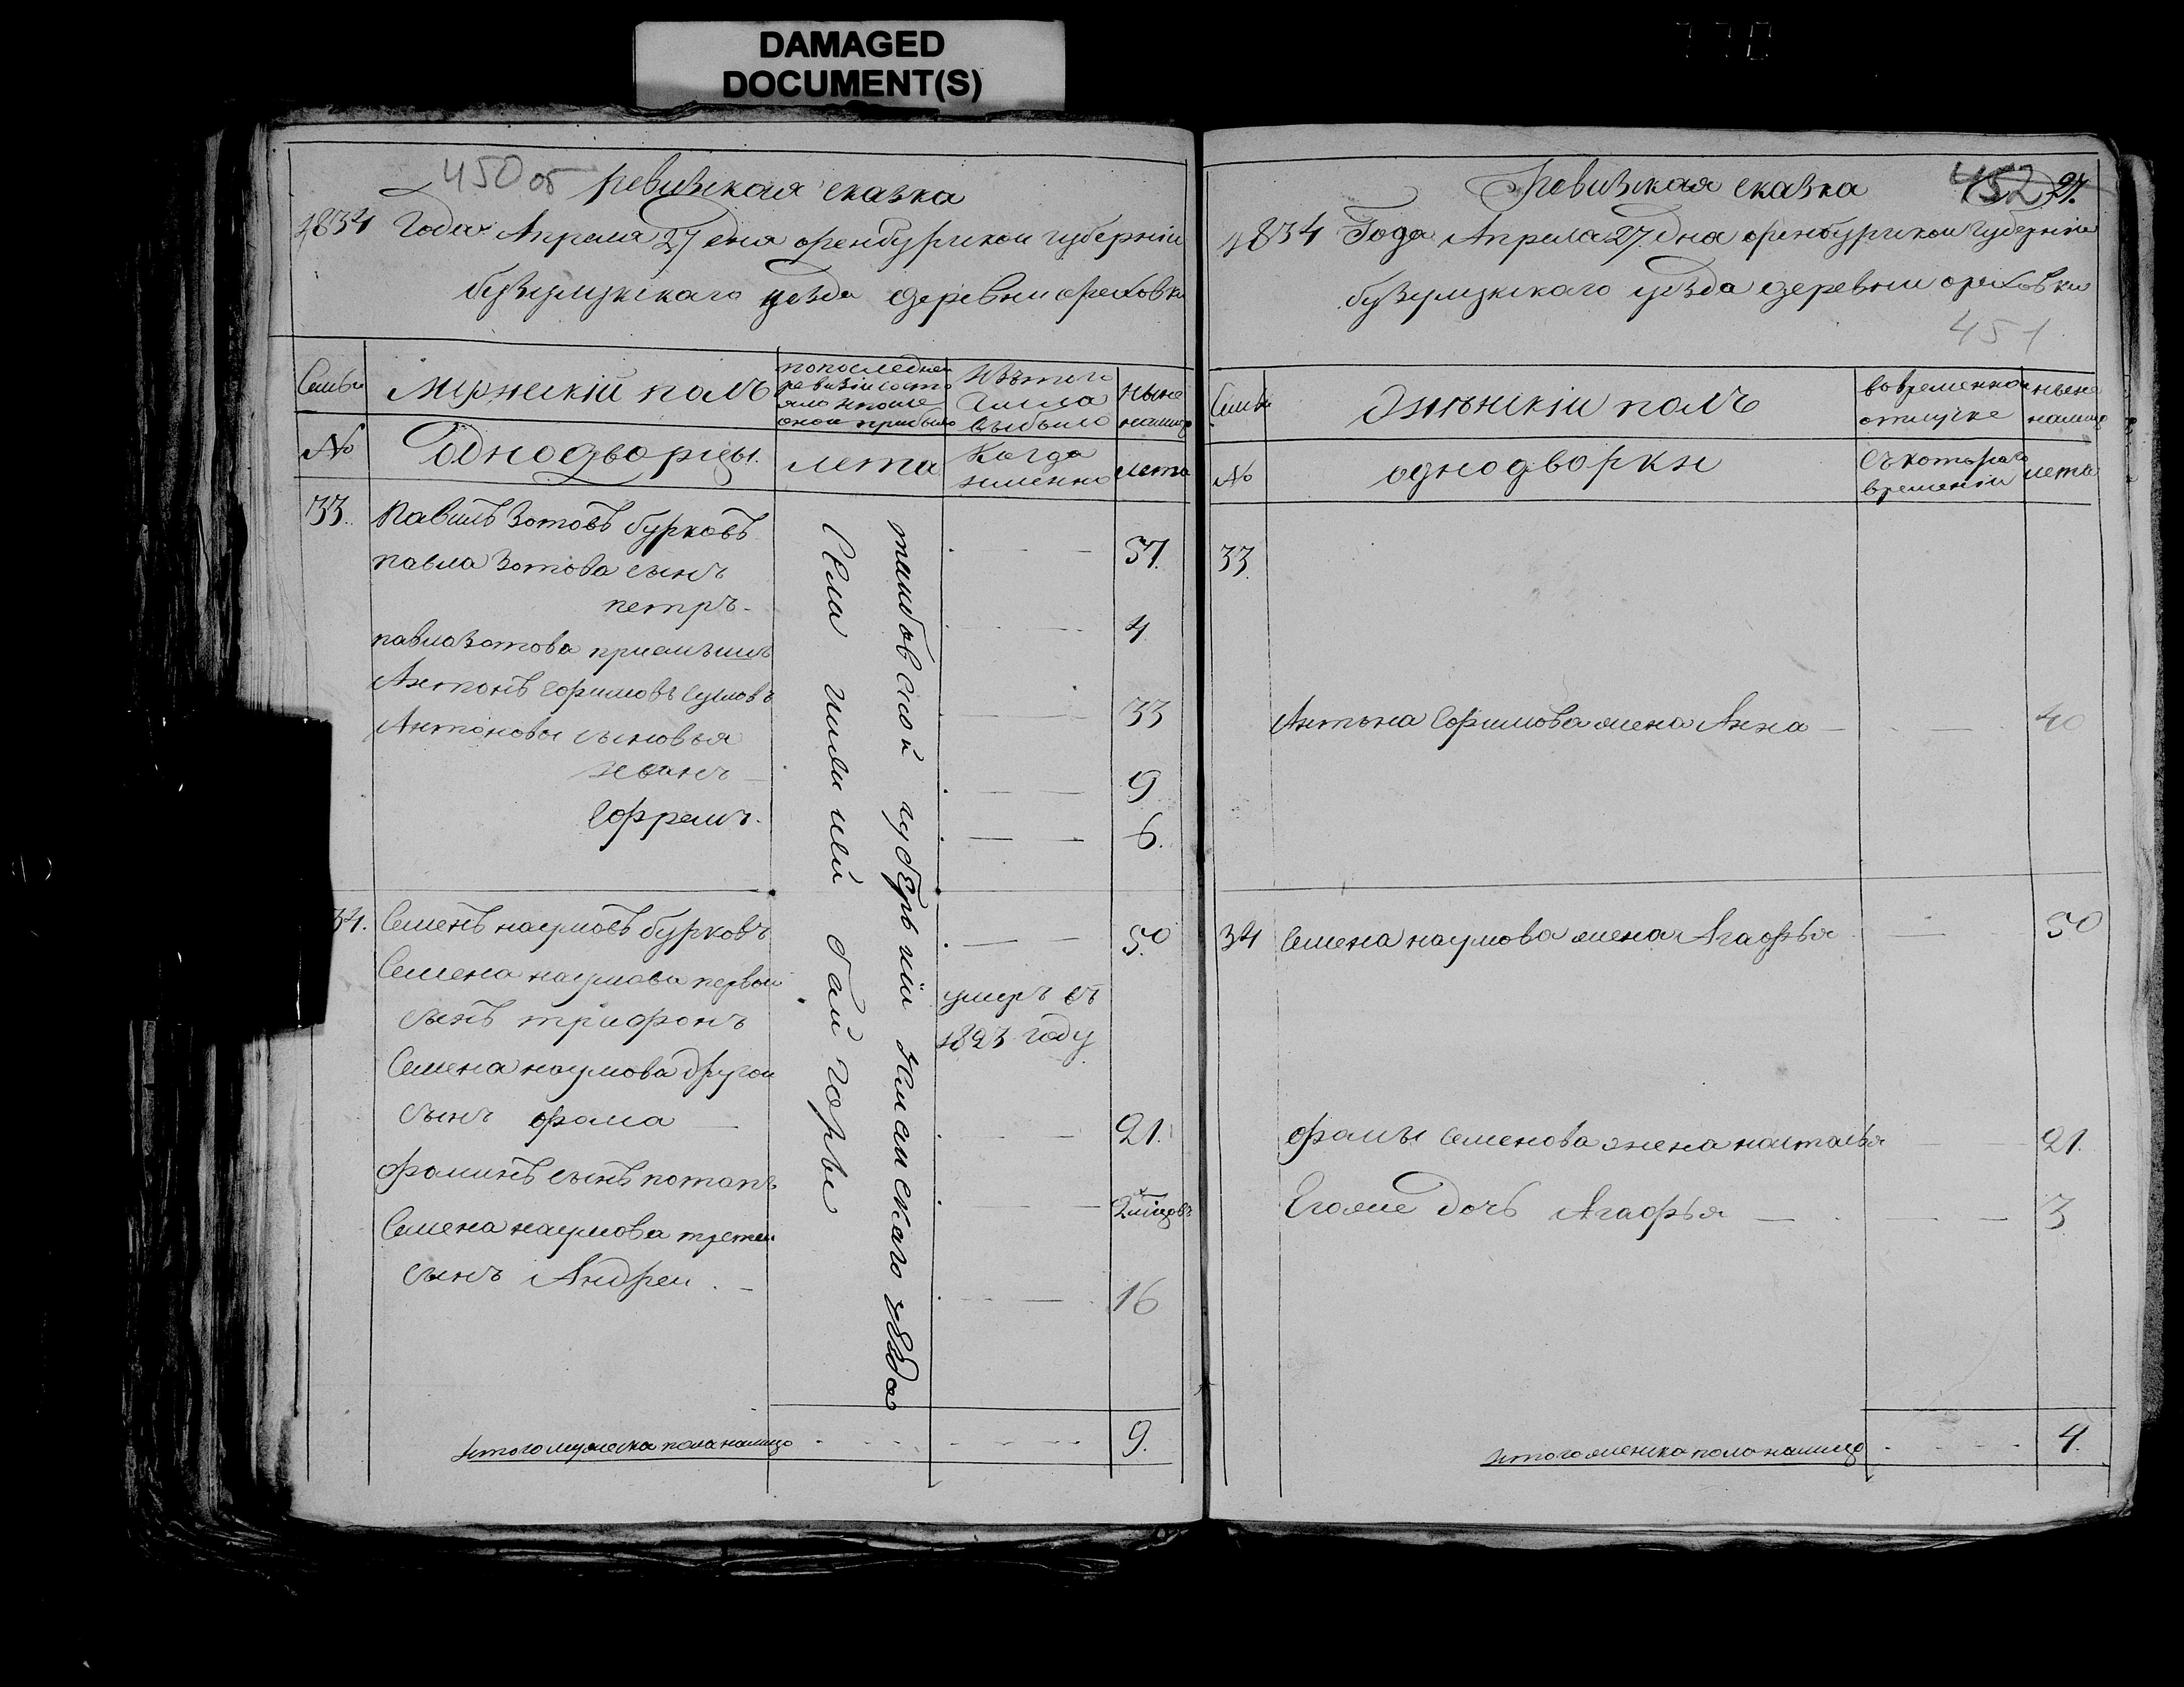 DAMAGED
DOCUMENT(S)
450 об ревизская сказка
1834 Года Апреля 27 дня оренбургской губернии
бузулуцкского уезда деревни ореховки
Семьи
Мужеский полъ
по последней
ревизии состо
яло и после
оной прибыло
Изъ того
числа
выбыло
ныне
налицо
№
Однодворцы.
лета
Когда
именно
лета
33.
Павилъ Зотовъ бурковъ
57.
павла Зотова сынъ
петръ.
4
павла Зотова приемышъ
Антонъ Ефимовъ
33
Антоновы сыновья
иванъ
9
Ефремъ.
6.
34.
Семенъ наумовъ бурковъ
50
Семена наумова первои
сынъ трифонъ
умеръ въ
1823 году
Семена наумова другои
сынъ фома
21.
фоминъ сынъ потапъ
Семена наумова третеи
сынъ Андреи
16
тамбовской губернии уезда
Села байгоры
итого мужеска пола налицо
9.
Ревизская сказка
452 27.
1834 Года Апреля 27 дня оренбургской губернии
бузулуцкского уезда деревни ореховки
451
Семьи
Женскии полъ
во временной
отлучке
ныне
налицо
№
однодворки
съ котораго
времении
лета
33.
Антона Ефимова жена Анна
40
34
Семена наумова жена Агафья
50
фомы Семенова жена насталья
21.
Егоже дочь Агафья
3
итого женска пола налицо
4.